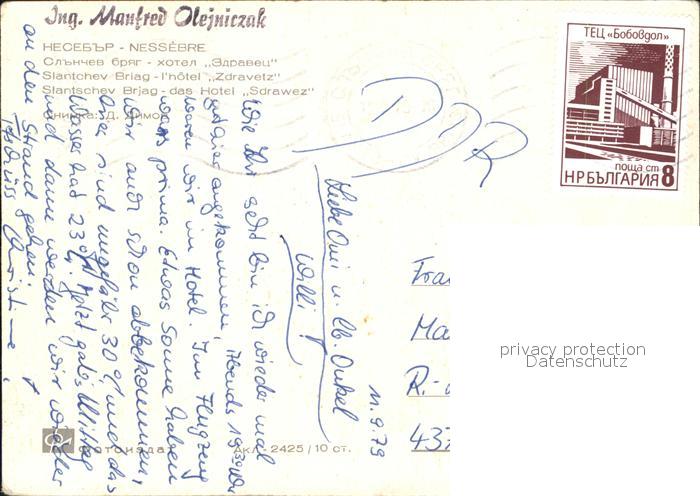 Ing. Manfred Olejniczak
НЕСЕБЪР - NESSÈBRE
Слънчев бряг - хотел „Здравец"
Slantchev Briag - l'hôtel „Zdravetz"
Slantschev Brjag - das Hotel „Sdrawez"
Снимка: Д. Димов
ТЕЦ „Бобовдол"
поща ст
НРБЪЛГАРИЯ 8
DDR
11.9.79
Liebe Omi u. lb. Onkel
Willi!
Wie Ihr seht bin ich wieder mal
gut hier angekommen, Abends 19³⁰ Uhr
waren wir im Hotel. Im Flugzeug
war's prima. Etwas Sonne haben
wir auch schon abbekommen,
hier sind ungefähr 30 °C und das
Wasser hat 23 °C. Jetzt gab's Mittag
und dann werden wir wieder
an den Strand gehen.
Tschüss Christine
Fra
Ma
R.-
437
privacy protection
Datenschutz
Фотоиздат
Акл - 2425 / 10 ст.